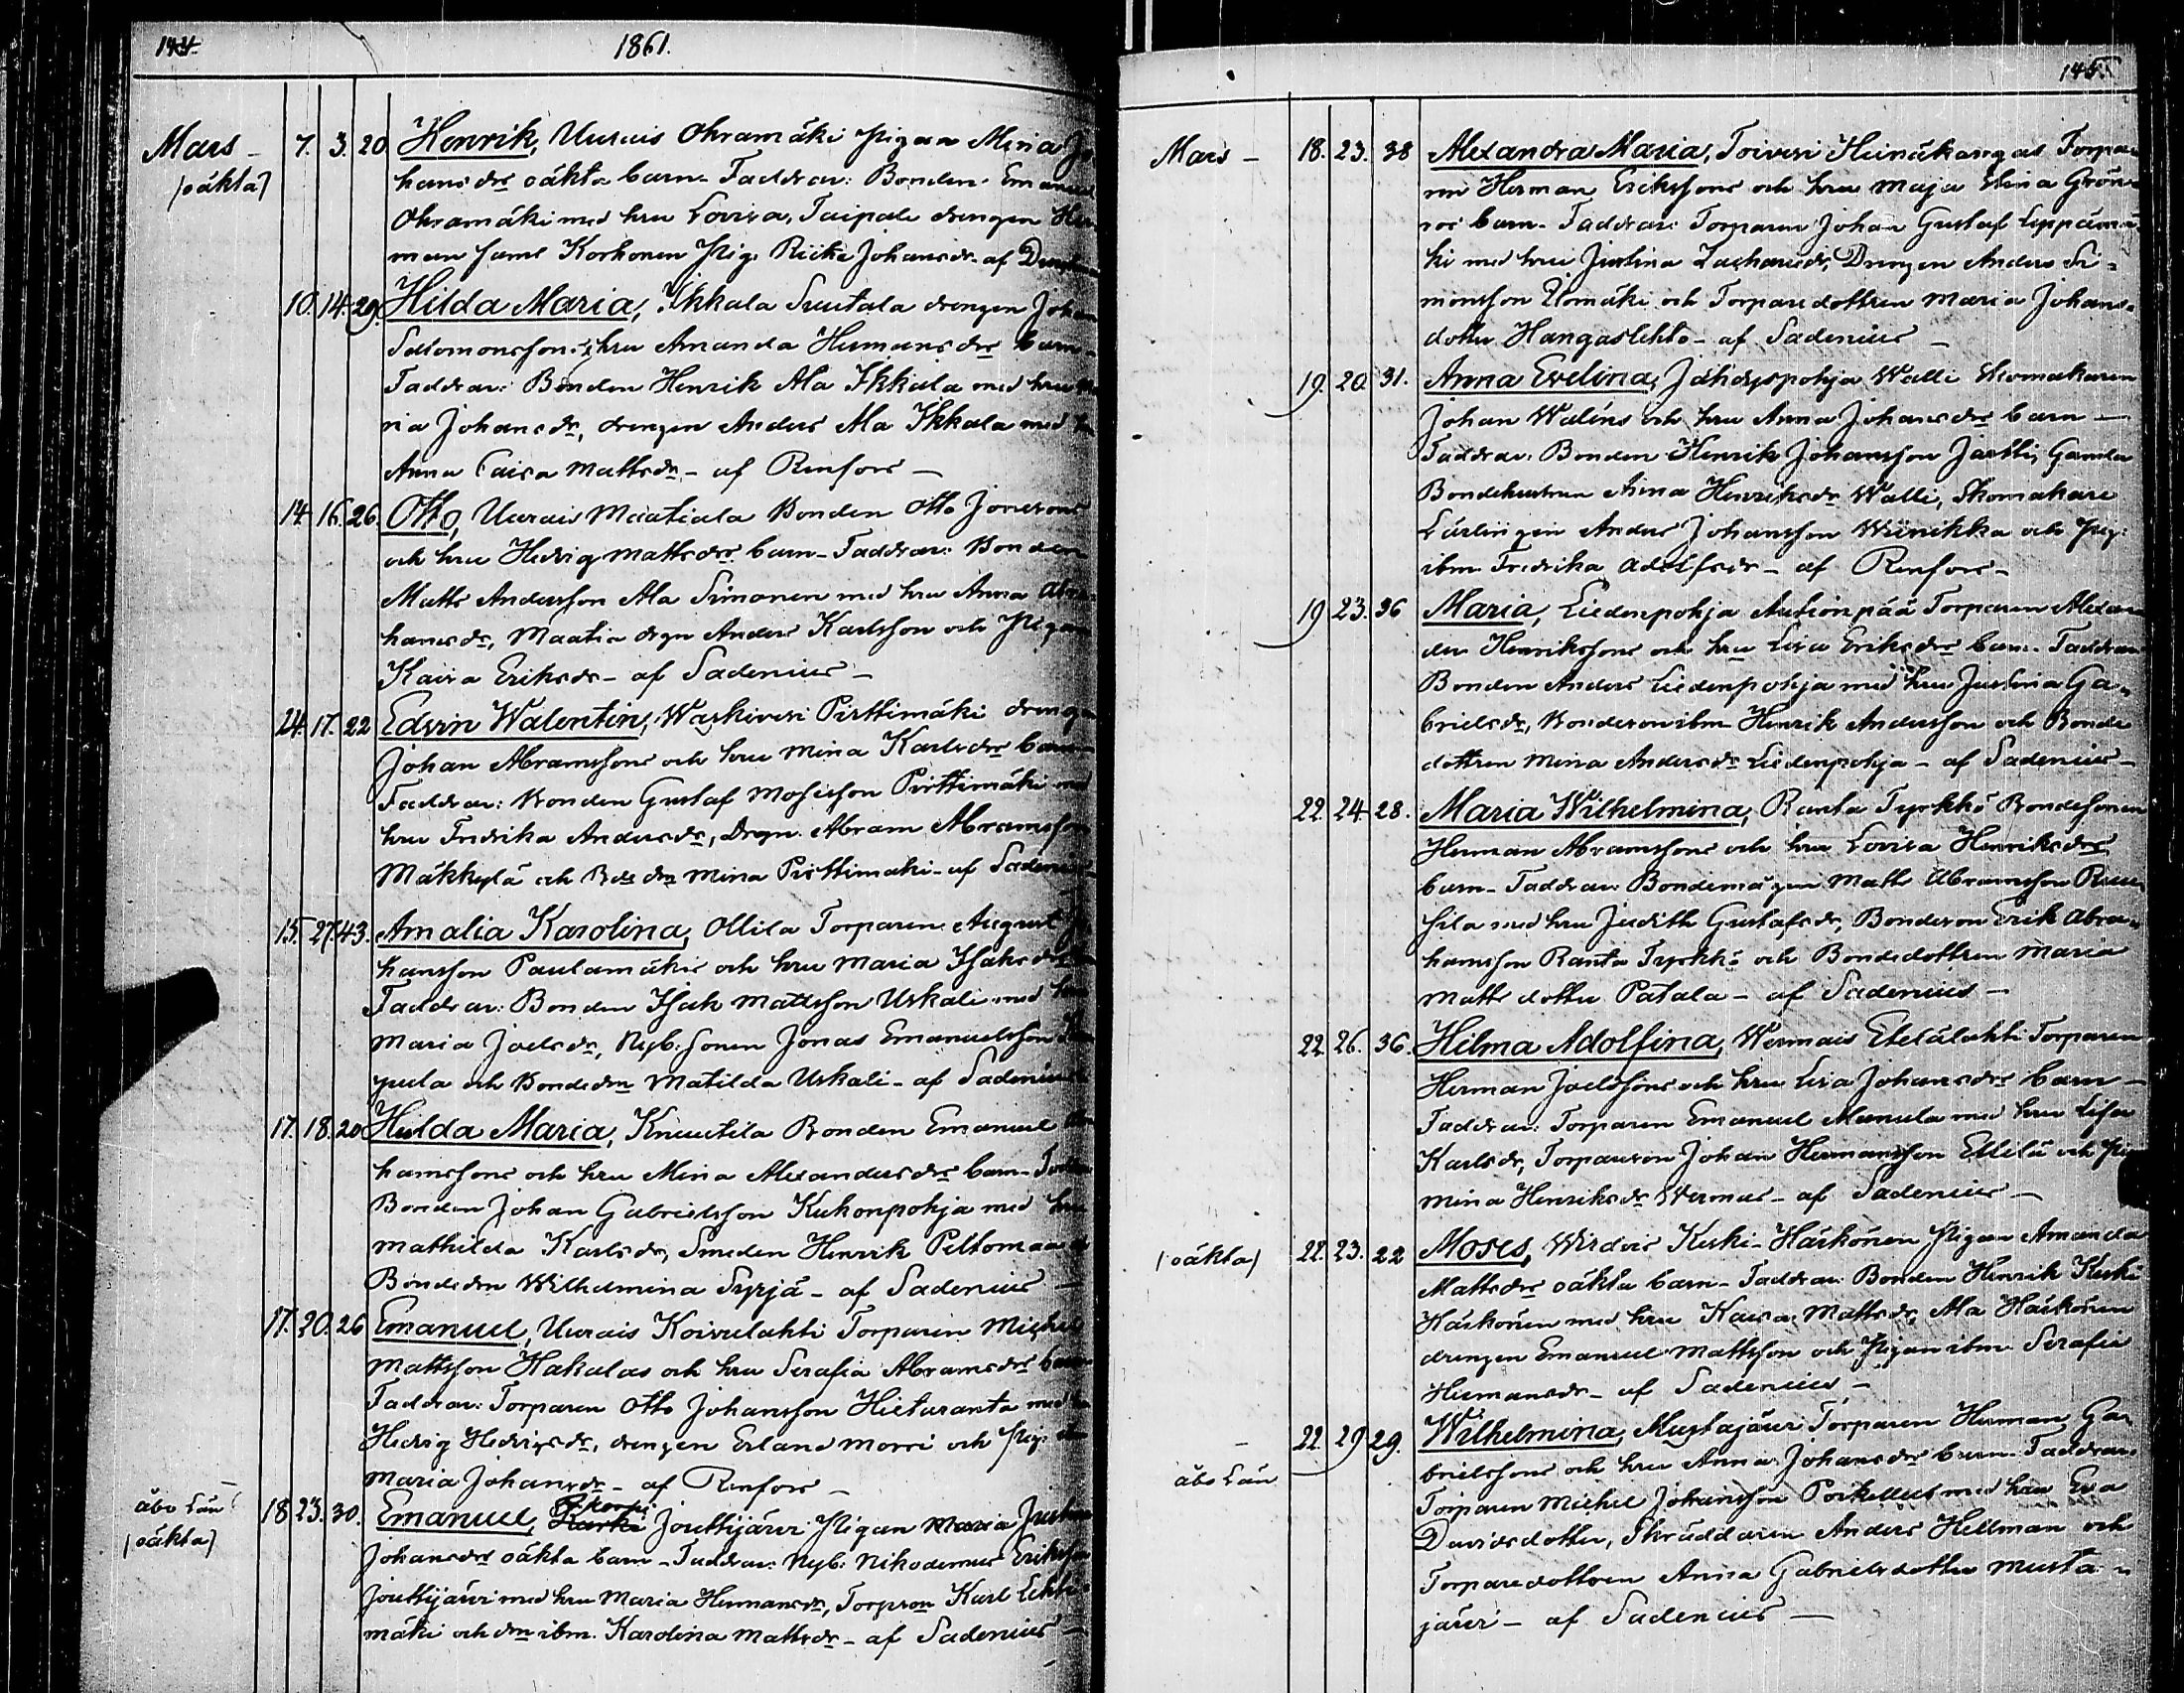 144.
1861.
Mars – 7. 3. 20 Henrik, Uurais Ohramäki Pigan Mina Jo
(oäkta) hans drs oäkta barn – Faddrar: Bonden Emanuel
Ohramäki med hru Lovisa, Taipale drengen Her
man Saml Korhonen Pig. Ricka Johansdr. af
10. 14. 29. Hilda Maria, Ikkala Suutala drengen Johan
Salomonssons o hru Amanda Hermans drs barn –
Faddrar: Bonden Henrik Ala Ikkala med hru
ria Johansdr, drengen Anders Ala Ikkala med
Anna Caisa Mattsdr – af Renfors –
14. 16. 26 Otto, Uurais Maatiala Bonden Otto Jonssons
och hru Hedvig Mattsdrs barn – Faddrar: Bonden
Matts Andersson Ala Simonen med hru Anna Abra
hamsdr, Maatia drgn Anders Karlsson och Pigan
Kaisa Eriksdr – af Sadenius –
24. 17. 22 Edvin Walentin, Waskivesi Pirttimäki dreng
Johan Abramssons och hru Mina Karlsdrs barn
Faddrar: Bonden Gustaf Mosisson Pirttimäki med
hru Fredrika Andersdr, Drgn. Abram Abramsson
Mäkkylä och Bde drn Mina Pirttimäki – af Sadenius
15. 27. 43. Amalia Karolina, Ollila Torparen August Jo
hansson Paulamäkis och hru Maria Isaksdrs
Faddrar: Bonden Isak Mattsson Uskali med hru
Maria Joelsdr, Nyb. sonen Jonas Emanuelsson
pula och Bondedrn Matilda Uskali – af Sadenius
17. 18. 20 Hulda Maria, Knuutila Bonden Emanuel Abra
hamssons och hru Mina Alexandersdrs barn –
Bonden Johan Gabrielsson Kukonpohja med hru
Mathilda Karlsdr, Smeden Henrik Peltomaa
Bondedrn Wilhelmina Syrjä – af Sadenius –
17. 20. 26 Emanuel, Uurais Koivulahti Torparen Michel
Mattsson Hakalas och hru Serafia Abramsdrs barn
Faddrar: Torparen Otto Johansson Hietaranta med
Hedvig Hedvigsdr, drengen Erland Morri och Pig:
Maria Johansdr – af Renfors –
åbo Län 18 23. 30. Emanuel, Karhi Jouttijärvi Pigan Maria Justina
(oäkta) Johansdrs oäkta barn – Faddrar: Nyb: Nikodemus Eriksson
Jouttijärvi med hru Maria Hermansdr, Torpson Karl Lehti
mäki och drn ibm. Karolina Mattsdr – af Sadenius –
145.
Mars – 18. 23. 38 Alexandra Maria, Toivesi Heinäkangas Torpa
ren Herman Erikssons och hru Maja Stina Grön
ros barn – Faddrar: Torparen Johan Gustaf Leppämä
ki med hru Justina Zachrisdr, Drengen Anders Si-
monsson Elomäki och Torparedottren Maria Johans-
dotter Hangaslehto – af Sadenius –
19. 20. 31. Anna Evelina, Jähdyspohja Walli Skomakaren
Johan Waléns och hru Anna Johansdrs barn –
Faddrar: Bonden Henrik Johansson Jartti, Gamla
Bondehustrun Anna Henriksdr Walli, Skomakare
Lärlingen Anders Johansson Wänikka och Pig:
ibm Fredrika Adolfsdr – af Renfors –
19 23. 36 Maria, Liedenpohja Autionpää Torparen Alexan
der Henrikssons och hru Lisa Eriksdrs barn – Faddrar
Bonden Anders Liedenpohja med hru Justina Ga-
brielsdr, Bondeson ibm Henrik Andersson och Bonde
dottren Mina Andersdr Liedenpohja – af Sadenius –
22. 24. 28. Maria Wilhelmina, Ranta Tyrkkö Bondesonen
Herman Abramssons och hru Lovisa Henriksdrs
barn – Faddrar: Bondemågen Matts Abramsson
sila med hru Judith Gustafsdr, Bondeson Erik Abra-
hamsson Ranta Tyrkkö och Bondedottren Maria
Matts dotter Patala – af Sadenius –
22. 26. 36. Hilma Adolfina, Wermais Etelälahti Torparen
Herman Joelssons och hru Lisa Johansdrs barn –
Faddrar: Torparen Emanuel Manula med hru Lisa
Karlsdr, Torpareson Johan Hermansson Etelä och Pig
Mina Henriksdr Wermas – af Sadenius –
(oäkta) 22. 23. 22 Moses, Wirdois Keski-Härkönen Pigan Amanda
Mattsdrs oäkta barn – Faddrar: Bonden Henrik Keski
Härkönen med hru Kaisa Mattsdr, Ala Härkönen
drengen Emanuel Mattsson och Pigan ibm Serafia
Hermansdr – af Sadenius –
– 22 29 29. Wilhelmina, Mustajärvi Torparen Herman Ga
åbo Län brielssons och hru Anna Johansdrs barn – Faddrar
Torparen Michel Johansson Porkellus med hru Eva
Davidsdotter, Skräddaren Anders Hellman och
Torparedottren Anna Gabrielsdotter Musta-
järvi – af Sadenius –